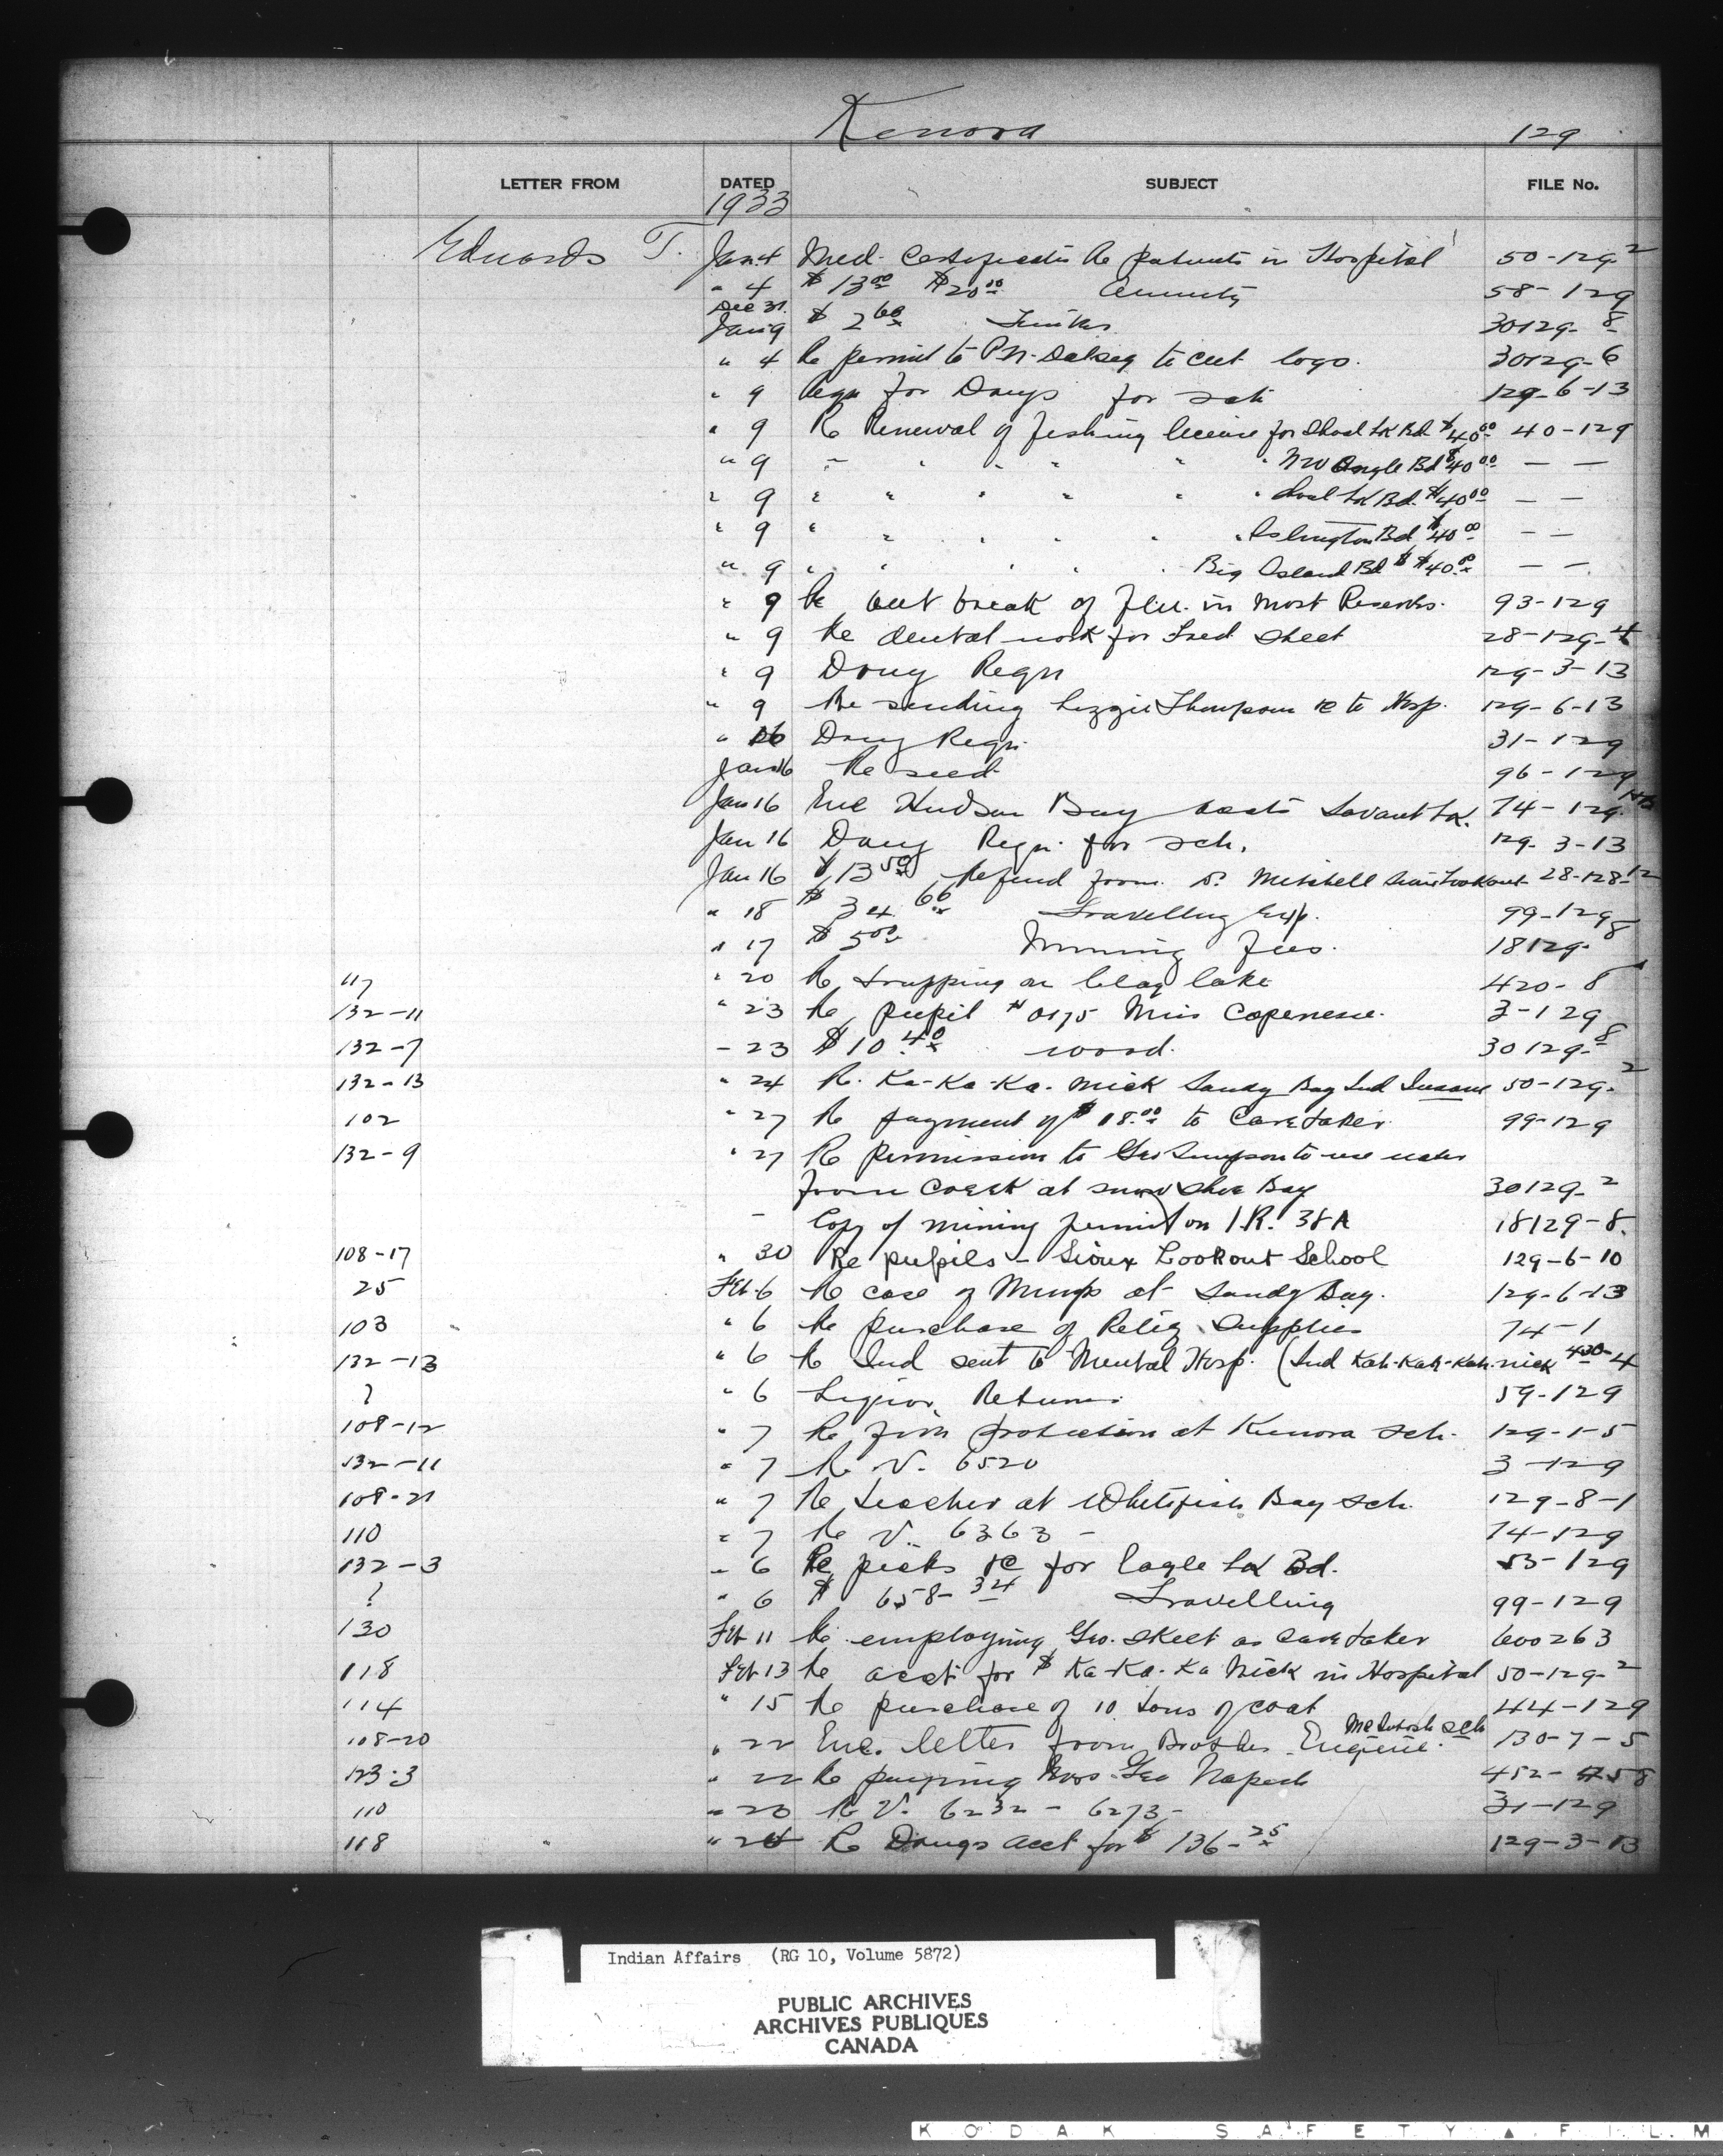 Kenora 129
LETTER FROM DATED SUBJECT FILE No.
1933
Edwards T. Jan 4 Med. Certificates Re patients in Hospital 50-129-2
" 4 $13.00 $20.00 Annuity 58-129
Dec 31.
Jan 9 $2.60 Timber 30129-8
" 4 Re permit to to cut logs. 30129-6
" 9 Reqn for Drugs for sch 129-6-13
" 9 Re Renewal of fishing license for Shoal Lk Bd $40.00 40-129
" 9 " " " " " " NW Angle Bd $40.00 — —
" 9 " " " " " " Shoal Lk Bd. $40.00 — —
" 9 " " " " " " Islington Bd $40.00 — —
" 9 " " " " " Big Island Bd $40.00 — —
" 9 Re out break of Flu. in most Reserves. 93-129
" 9 Re dental work for Fred Skeet 28-129-4
" 9 Drug Reqn 129-3-13
" 9 Re sending Lizzie Thompson to Hosp. 129-6-13
" 16 Drug Reqn. 31-129
Jan 16 Re seed 96-129
Jan 16 Enc Hudson Bay accts Savant Lk. 74-129
Jan 16 Drug Reqn. for sch. 129-3-13
Jan 16 $13.50 Refund from Mitchell Sioux Lookout 28-128-12
" 18 $34.60 Travelling Exp. 99-129
" 17 $5.00 Mining Fees. 18129-8
117 " 20 Re trapping on Clay lake 420-8
132-11 " 23 Re pupil #0175 3-129
132-7 - 23 $10.40 wood. 30129-8
132-13 " 24 R. Ka-Ka-Ka. nick Sandy Bay Ind Insane 50-129-2
102 " 27 Re payment of $18.00 to Caretaker 99-129
132-9 " 27 Re Permission to Geo Simpson to use water
from Creek at snow shoe Bay 30129-2
- Copy of mining permit on I.R. 38A 18129-8.
108-17 " 30 Re pupils - Sioux Lookout School 129-6-10
25 Feb-6 Re case of Mumps at Sandy Bay. 129-6-13
103 " 6 Re purchase of Relief Supplies 74-1
132-13 " 6 Re Ind sent to Mental Hosp. (Ind Kah-Kah-Kah. nick 430-4
? " 6 Liquor Returns 59-129
108-12 " 7 Re fire protection at Kenora sch. 129-1-5
132-11 " 7 Re V. 6520 3-129
108-21 " 7 Re teacher at Whitefish Bay sch. 129-8-1
110 " 7 Re V. 6363 - 74-129
132-3 " 6 Re picks for Eagle Lk Bd. 55-129
? " 6 $658-34 Travelling 99-129
130 Feb 11 Re employing Geo. Skeet as Care taker 600263
118 Feb 13 Re acct for $ Ka-Ka-Ka Nick in Hospital 50-129-2
114 " 15 Re purchase of 10 tons of coal 44-129
108-20 " 22 Enc. letter from Brother Eugene. McIntosh sch 130-7-5
123-3 " 22 Re paying Mrs. Geo Napesh
110 " 23 Re V. 6232 - 6273- 31-129
118 " 24 Re Drugs acct for $136-25 129-3-13
Indian Affairs (RG 10, Volume 5872)
PUBLIC ARCHIVES
ARCHIVES PUBLIQUES
CANADA
KODAK SAFETY ▲ FILM